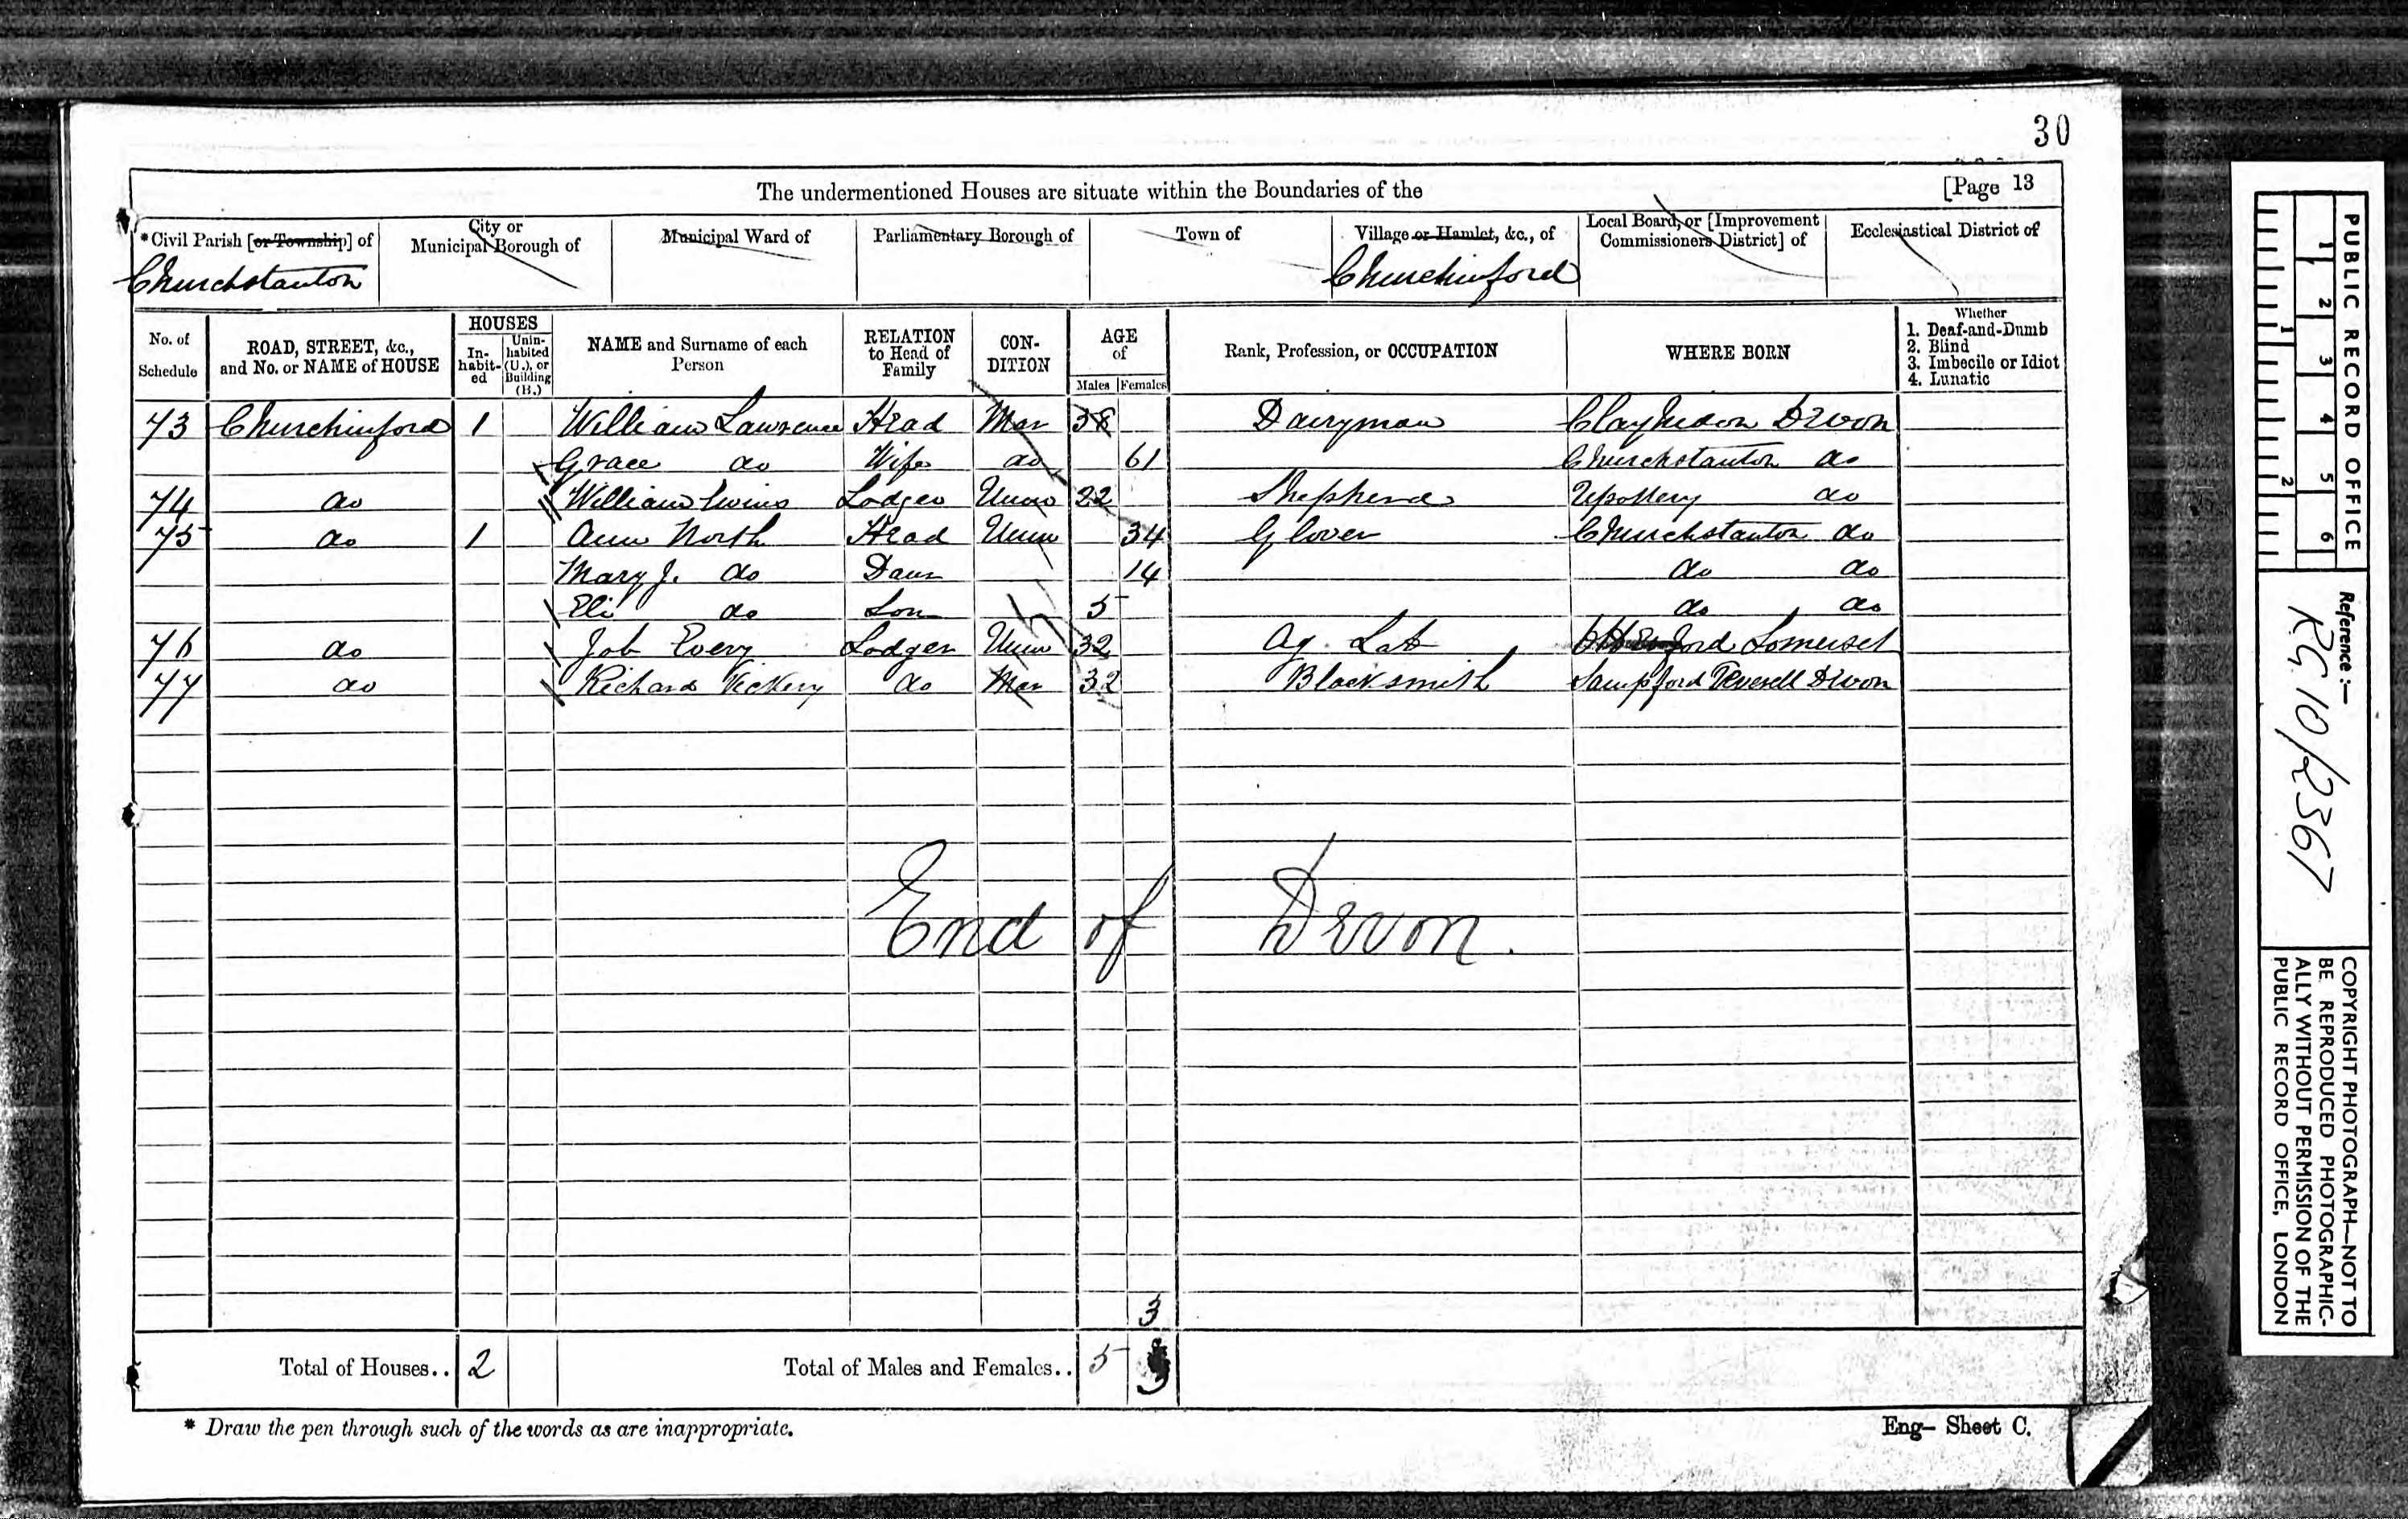 30
The undermentioned Houses are situate within the Boundaries of the [Page 13
*Civil Parish [or Township] of
Churchstanton
City or
Municipal Borough of
Municipal Ward of
Parliamentary Borough of
Town of
Village or Hamlet, &c., of
Churchinford
Local Board, or [Improvement
Commissioners District] of
Ecclesiastical District of
No. of
Schedule
ROAD, STREET, &c.,
and No. or NAME of HOUSE
HOUSES
In-
habit-
ed
Unin-
habited
(U.), or
Building
(B.)
NAME and Surname of each
Person
RELATION
to Head of
Family
CON-
DITION
AGE
of
Males Females
Rank, Profession, or OCCUPATION
WHERE BORN
Whether
1. Deaf-and-Dumb
2. Blind
3. Imbecile or Idiot
4. Lunatic
73 Churchinford 1 William Lawrence Head Mar Dairyman Clayhidon Devon
Grace do Wife do 61 Churchstanton do
74 do William Lodger Unm 22 Shepherd Upottery do
75 do 1 Ann North Head Unm 34 Glover Churchstanton do
Mary J. do Daur 14 do do
Eli do Son 5 do do
76 do Job Every Lodger Unm 32 Ag. Lab Somerset
77 do Richard Vickery do Mar 32 Blacksmith Sampford Peverell Devon
End of Devon.
3
Total of Houses.. 2 Total of Males and Females.. 5 3
* Draw the pen through such of the words as are inappropriate.
Eng- Sheet C.
PUBLIC RECORD OFFICE
1 2 3 4 5 6
1 2
Reference:-
RG 10/2367
COPYRIGHT PHOTOGRAPH—NOT TO
BE REPRODUCED PHOTOGRAPHIC-
ALLY WITHOUT PERMISSION OF THE
PUBLIC RECORD OFFICE, LONDON